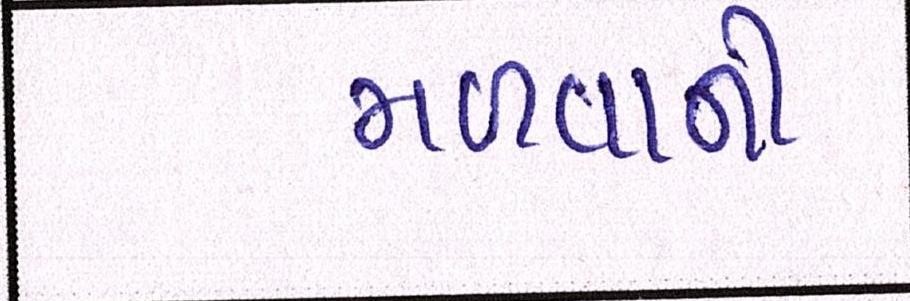 મળવાની